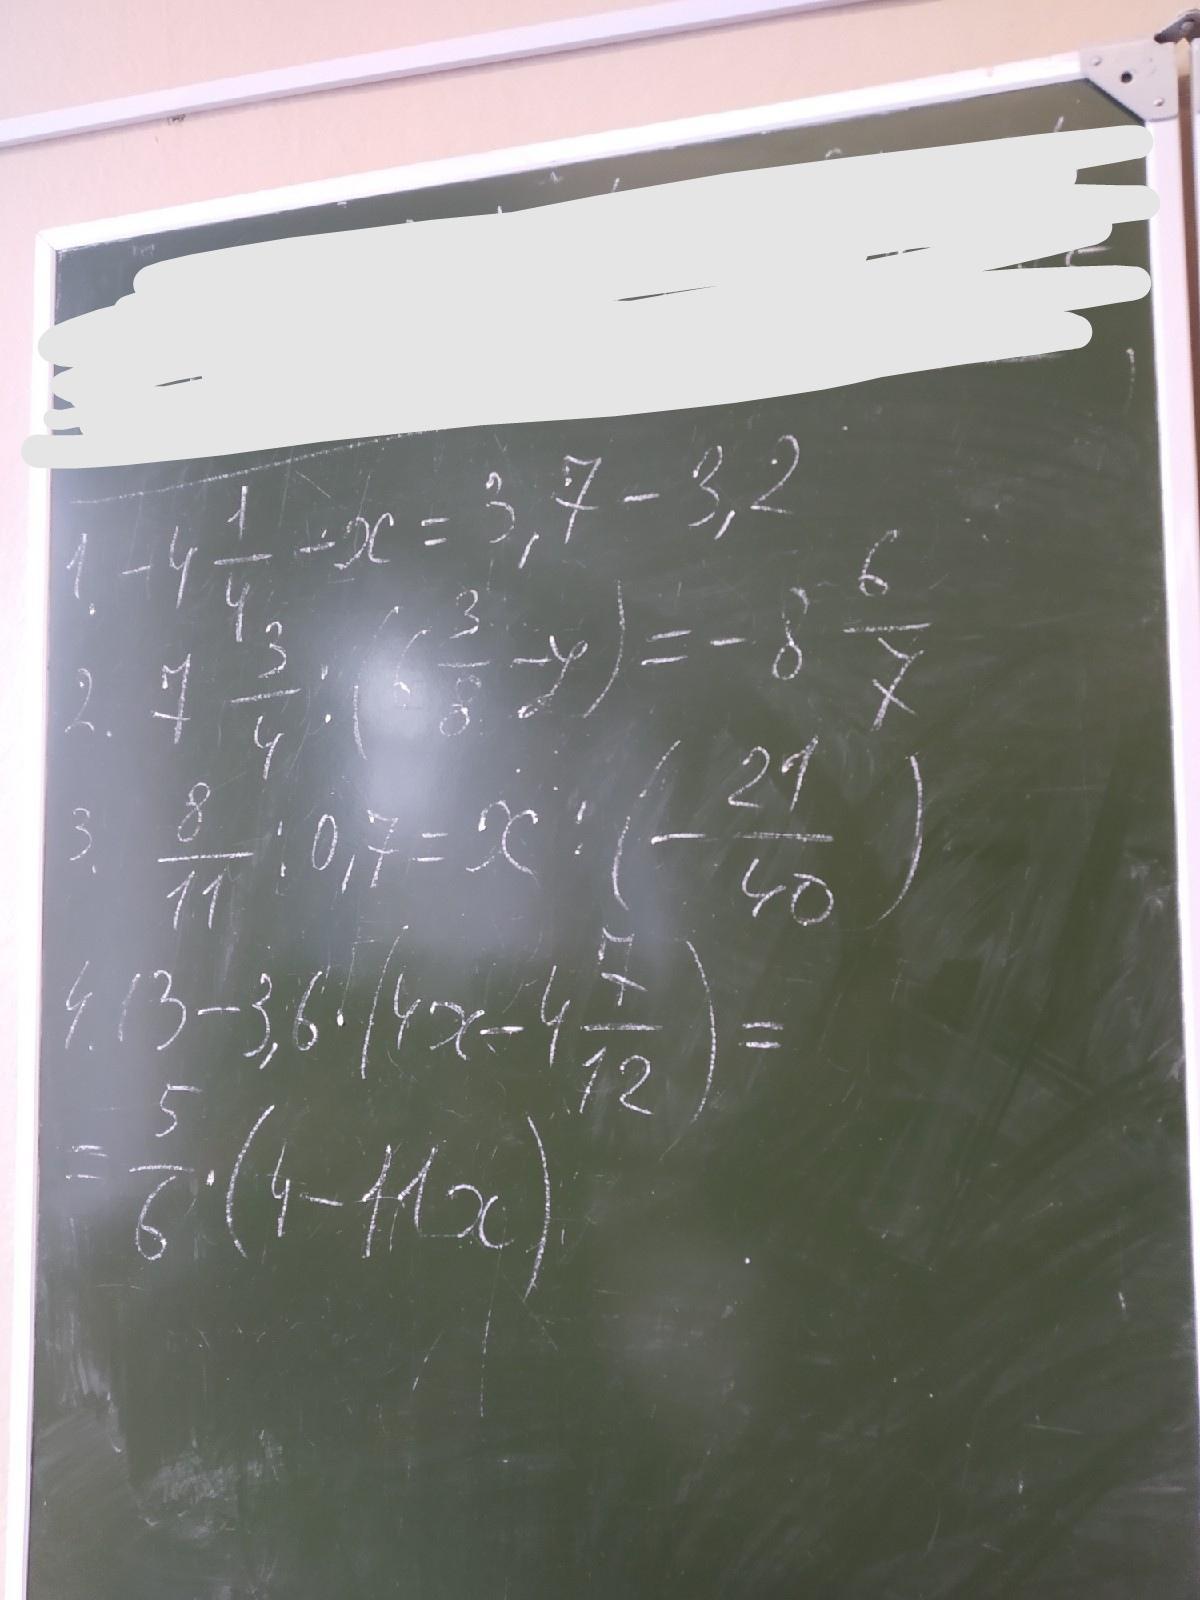 1. -4 1/4 - x = 3,7 - 3,2
2. 7 3/4 : (6 3/8 - y) = -8 6/7
3. 8/11 : 0,7 = x : (-21/40)
4. 13 - 3,6 · (4x - 4 7/12) =
= 5/6 · (4 - 11x)